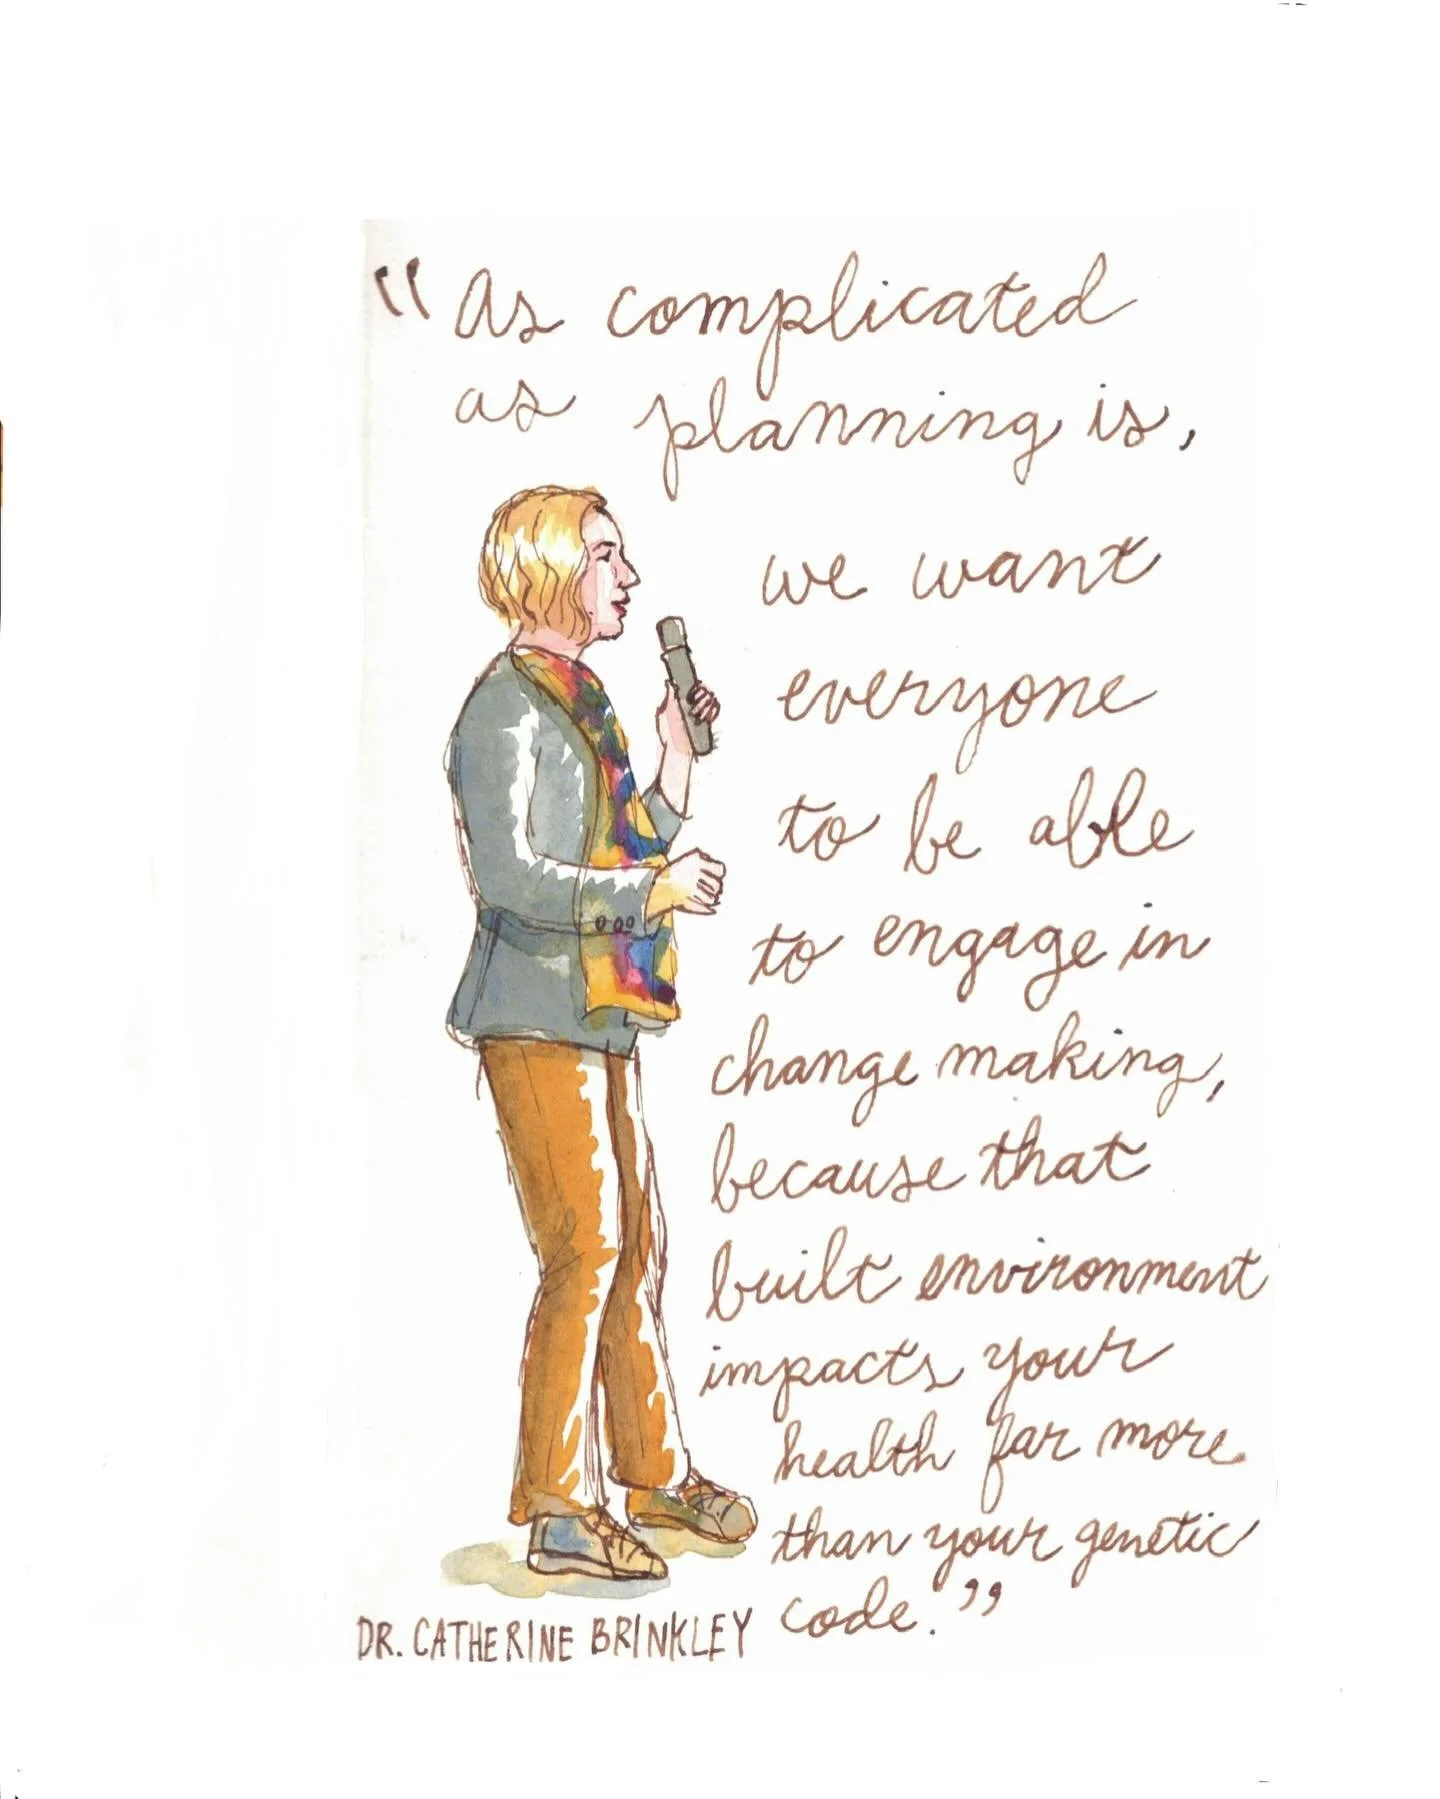 “As complicated
as planning is,
we want
everyone
to be able
to engage in
change making,
because that
built environment
impacts your
health far more
than your genetic
code.”
DR. CATHERINE BRINKLEY